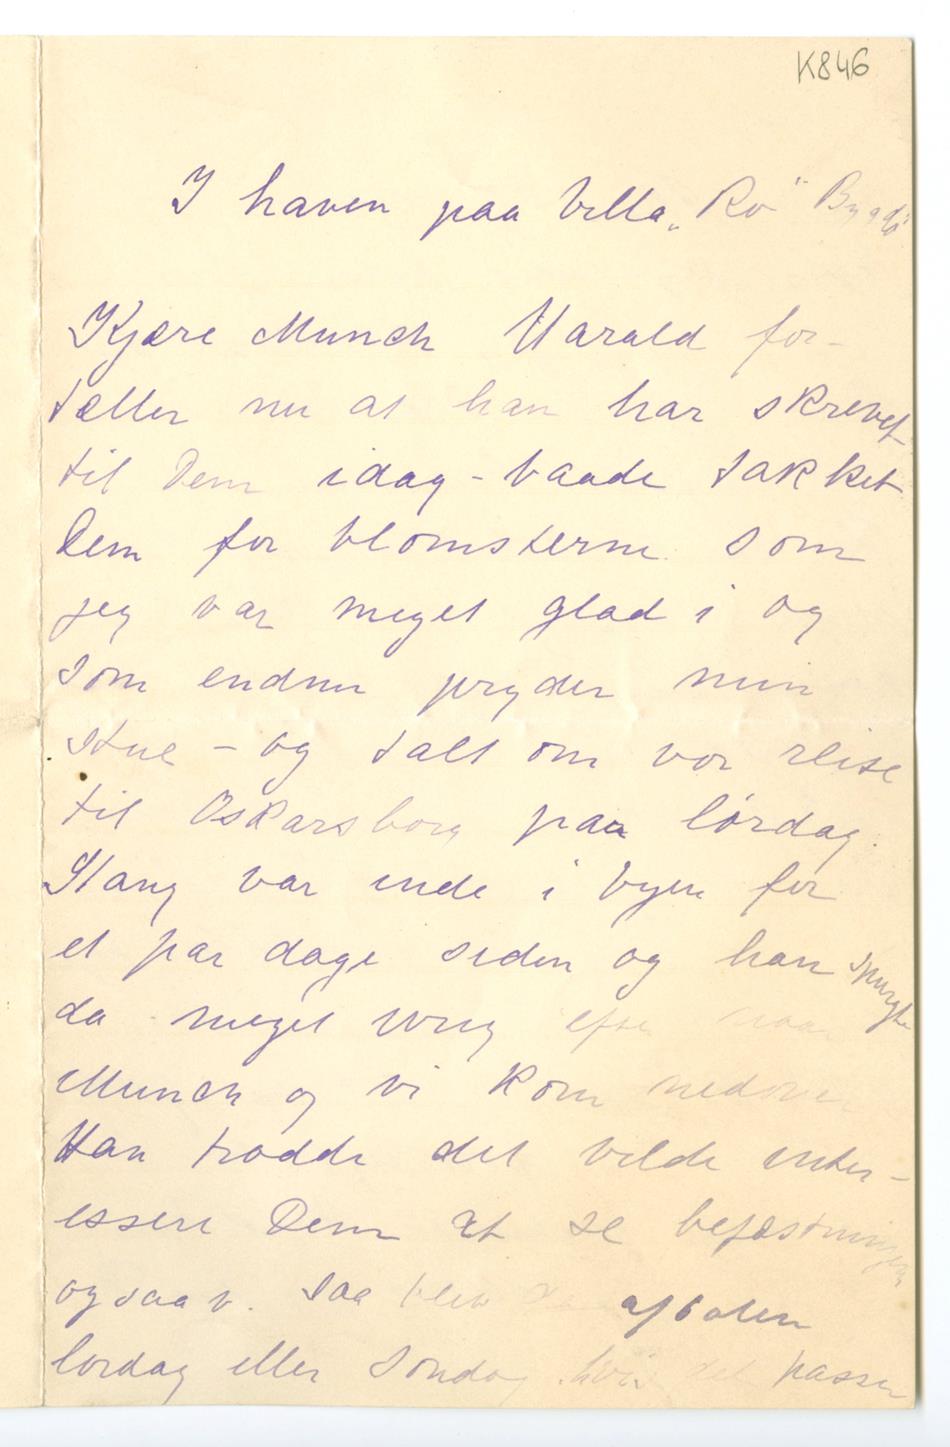 K846
I haven paa Villa „Rö" Bygdö
Kjære Munch Harald for-
tæller nu at han har skrevet
til Dem idag - baade takket
Dem for blomsterne som
jeg var meget glad i og
som endnu pryder min
stue - og talt om vor reise
til Oskarsborg paa lørdag.
Stang var inde i byen for
et par dage siden og han spurgte
da meget ivrig efter naar
Munch og vi kom nedover
Han trodde det vilde inter-
essere Dem at se befæstningen
ogsaa v. Saa blev aftalen
lørdag eller søndag hvis det passer